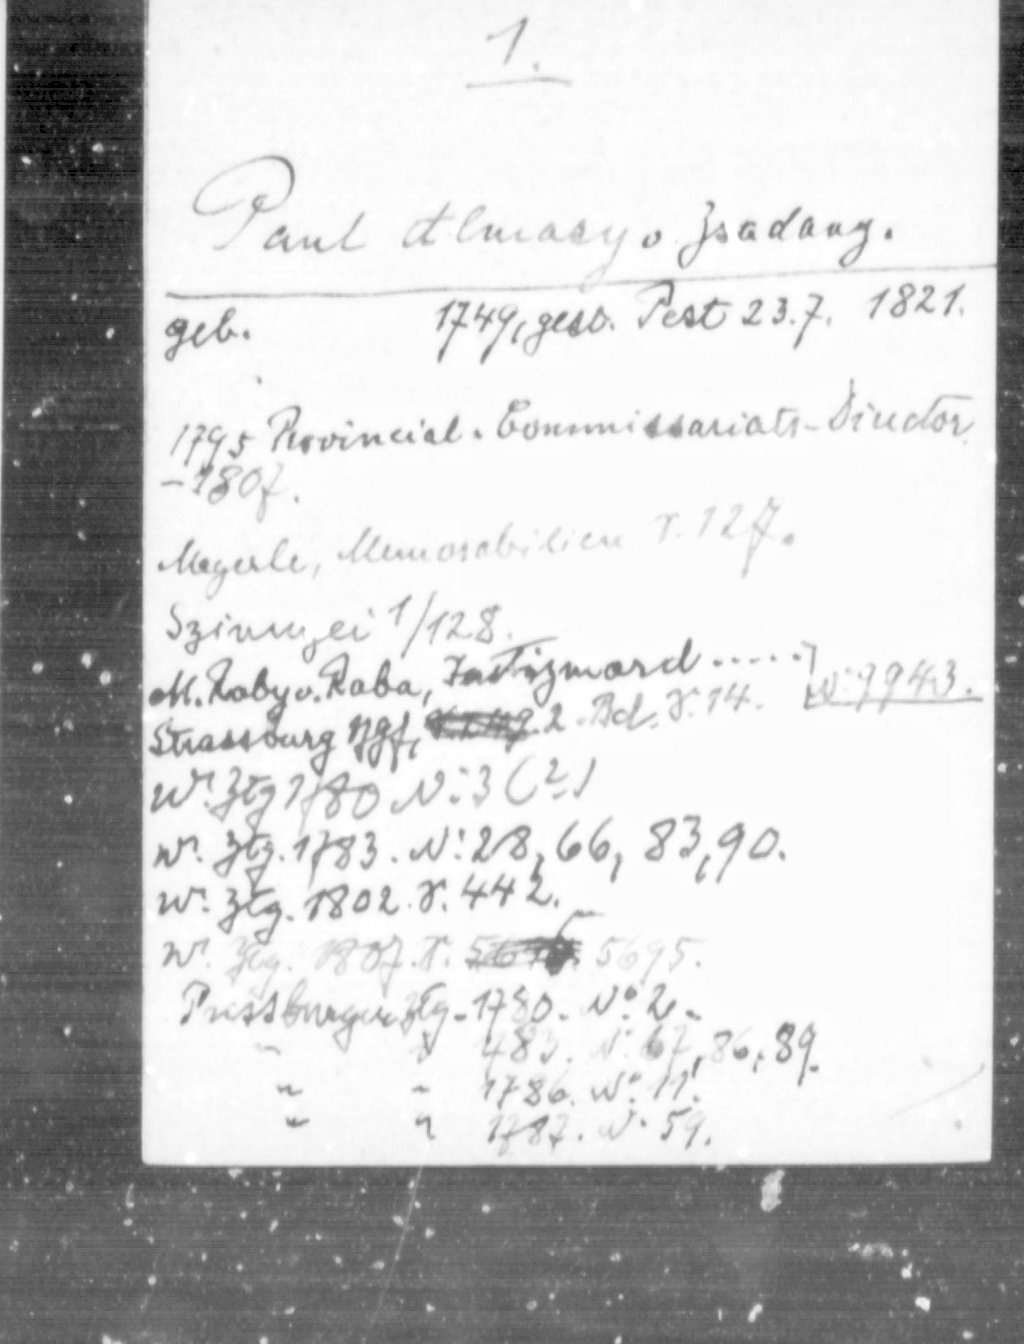 1.
Paul Almasy v. Zsadany.
geb. 1749, gest. Pest 23.7. 1821.
1795 Provincial-Commissariats-Director
-1807.
Megerle, Memorabilien S. 127.
Szinnyei 1/128.
M. Raby v. Raba, Justizmord ..... N: 9943.
Strassburg 2. Bd. S. 14.
Wr. Ztg 1780 N: 3 (2.)
Wr. Ztg. 1783. N: 28, 66, 83, 90.
Wr. Ztg. 1802. S. 442.
Wr. Ztg. 1807. S. 5695.
Pressburger Ztg. 1780. No 2.
" " 483. N: 67, 86, 89.
" " 1786. No 11.
" " 1787. N. 59.